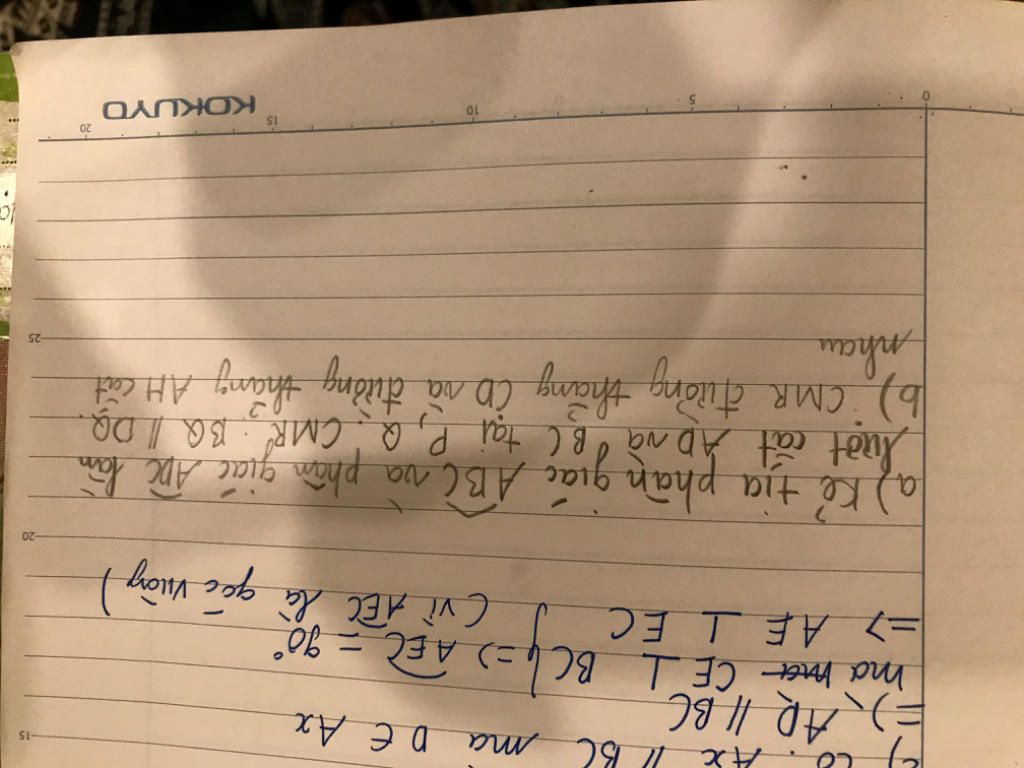 c) Có : Ax // BC mà D ∈ Ax
=> AD // BC
mà CE ⊥ BC } => AEC = 90°
=> AE ⊥ EC } ( vì AEC là góc vuông )
a) Kẻ tia phân giác ABC và phân giác ADC lần
lượt cắt AD và BC tại P, Q. CMR : BQ // DQ.
b) CMR đường thẳng CD và đường thẳng AH cắt
nhau
15
20
25
0
5
10
15
20
KOKUYO